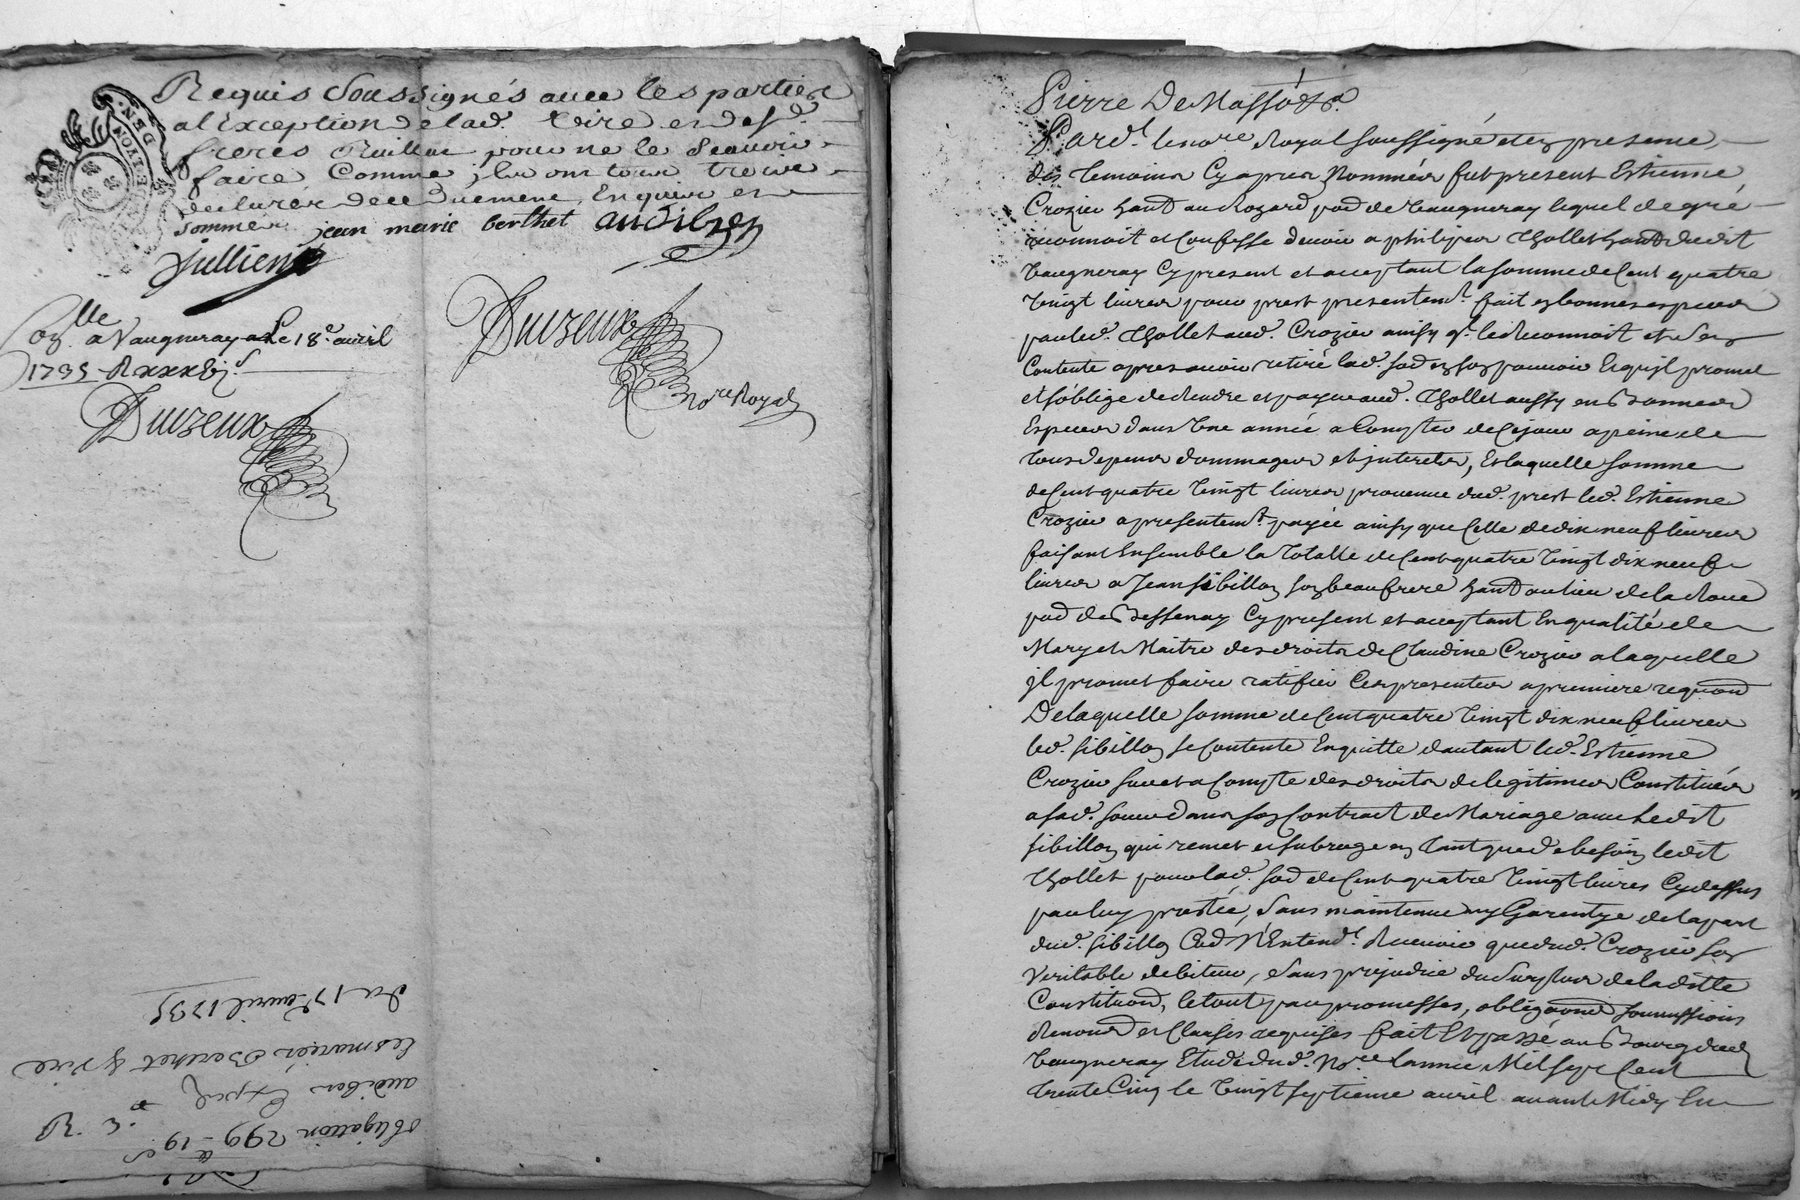 Requis Soussignés avec les parties
a l'Exception de lad. Vire et desd.
freres pour ne le Scavoir
faire Comme ils ont tous trois
declarés de ce duement Enquis et
sommes. jean marie berthet audibert
Jullien
DEN. LYON
Duvzeux
nore Royal
a Vaugneray Le 18e. avril
1735 Rxxxvj s
Duvzeux
du 17e avril 1735
Les mariés Berthet & Vire
audibert Exped
obligation 299 - 19
Pierre De Massó
Pard.t le nore Royal soussigné et en presence
des temoins Cy apres Nommés fut present Estienne
Crozier habt au Rozard pad de Vaugneray lequel de gré
reconnoit et Confesse devoir a philipes thollet habt dudit
Vaugneray Cy present et acceptant la somme de Cent quatre
Vingt livres pour prest presentemt. fait en bonnes especes
par led. thollet aud. Crozier ainsy ql. le Reconnoit et s'en
Contente apres avoir retiré lad. sod en son pouvoir Lequ'il promet
et s'oblige de Rendre et payer aud. thollet aussy en Bonnes
Especes dans Une année a Compter de Ce jour a peine de
tous depens dommages et interets, Et laquelle somme
de Cent quatre Vingt livres provenue dud. prest led. Estienne
Crozier a presentemt. payée ainsy que Celle de dix neuf livres
faisant Ensemble la totalle de Cent quatre Vingt dix neuf
livres a Jean sibillon son beaufrere habt au lieu de la Roue
pad de Bessenay Cy present et acceptant En qualité de
Mary et Maitre des droits de Claudine Crozier a laquelle
jl promet faire ratifier Ces presentes a premiere requon
De laquelle somme de Cent quatre Vingt dix neuf livres
led. sibillon se Contente En quitte d'autant led. Estienne
Crozier sur et a Compte des droits de legitimes Constitués
a sad. soeur dans son Contract de Mariage avec ledit
sibillon qui remet et subroge en tant que de besoin ledit
thollet pour lad. sod de Cent quatre Vingt livres Cy dessus
par luy prestée, Sans maintenue ny Garentye de la part
dud. sibillon Led N'Entendt. Recevoir que dud. Crozier son
Veritable debiteur, Sans prejudice du Surplus de laditte
Constituon, le tout par promesses, obligaons soumissions
Renonon et Clauses requises fait Et passé au Bourg dud
Vaugneray Etude dud. Nore L'année Mil sept Cent
trente Cinq le Vingt septieme avril avant Midy En